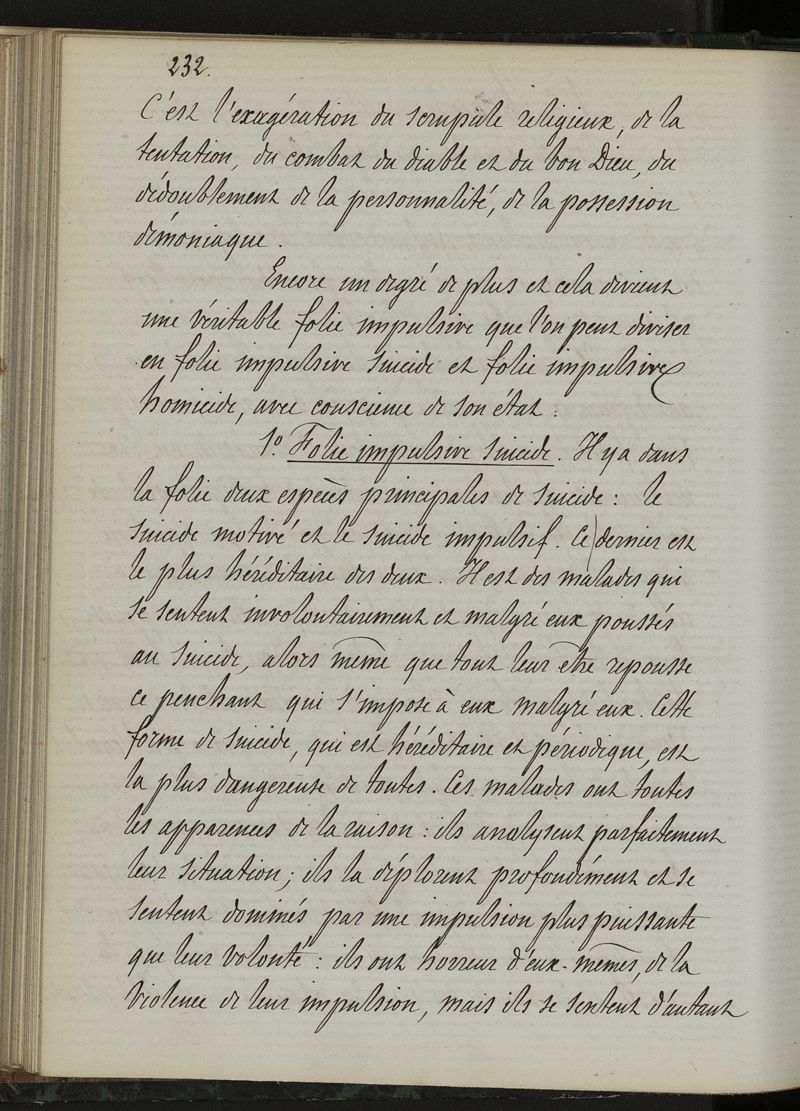 232.
C'est l'exagération du scrupule religieux, de la
tentation, du combat du diable et du bon Dieu, du
dédoublement de la personnalité, de la possession
démoniaque.
Encore un degré de plus et cela devient
une véritable folie impulsive que l'on peut diviser
en folie impulsive suicide et folie impulsive
homicide, avec conscience de son état :
1º. Folie impulsive suicide. Il y a dans
la folie deux espèces principales de suicide : le
suicide motivé et le suicide impulsif. Ce dernier est
le plus héréditaire des deux. Il est des malades qui
se sentent involontairement et malgré eux poussés
au suicide, alors même que tout leur être repousse
ce penchant qui s'impose à eux malgré eux. Cette
forme de suicide, qui est héréditaire et périodique, est
la plus dangereuse de toutes. Ces malades ont toutes
les apparences de la raison : ils analysent parfaitement
leur situation ; ils la déplorent profondément et se
sentent dominés par une impulsion plus puissante
que leur volonté : ils ont horreur d'eux-mêmes, de la
violence de leur impulsion, mais ils se sentent d'autant